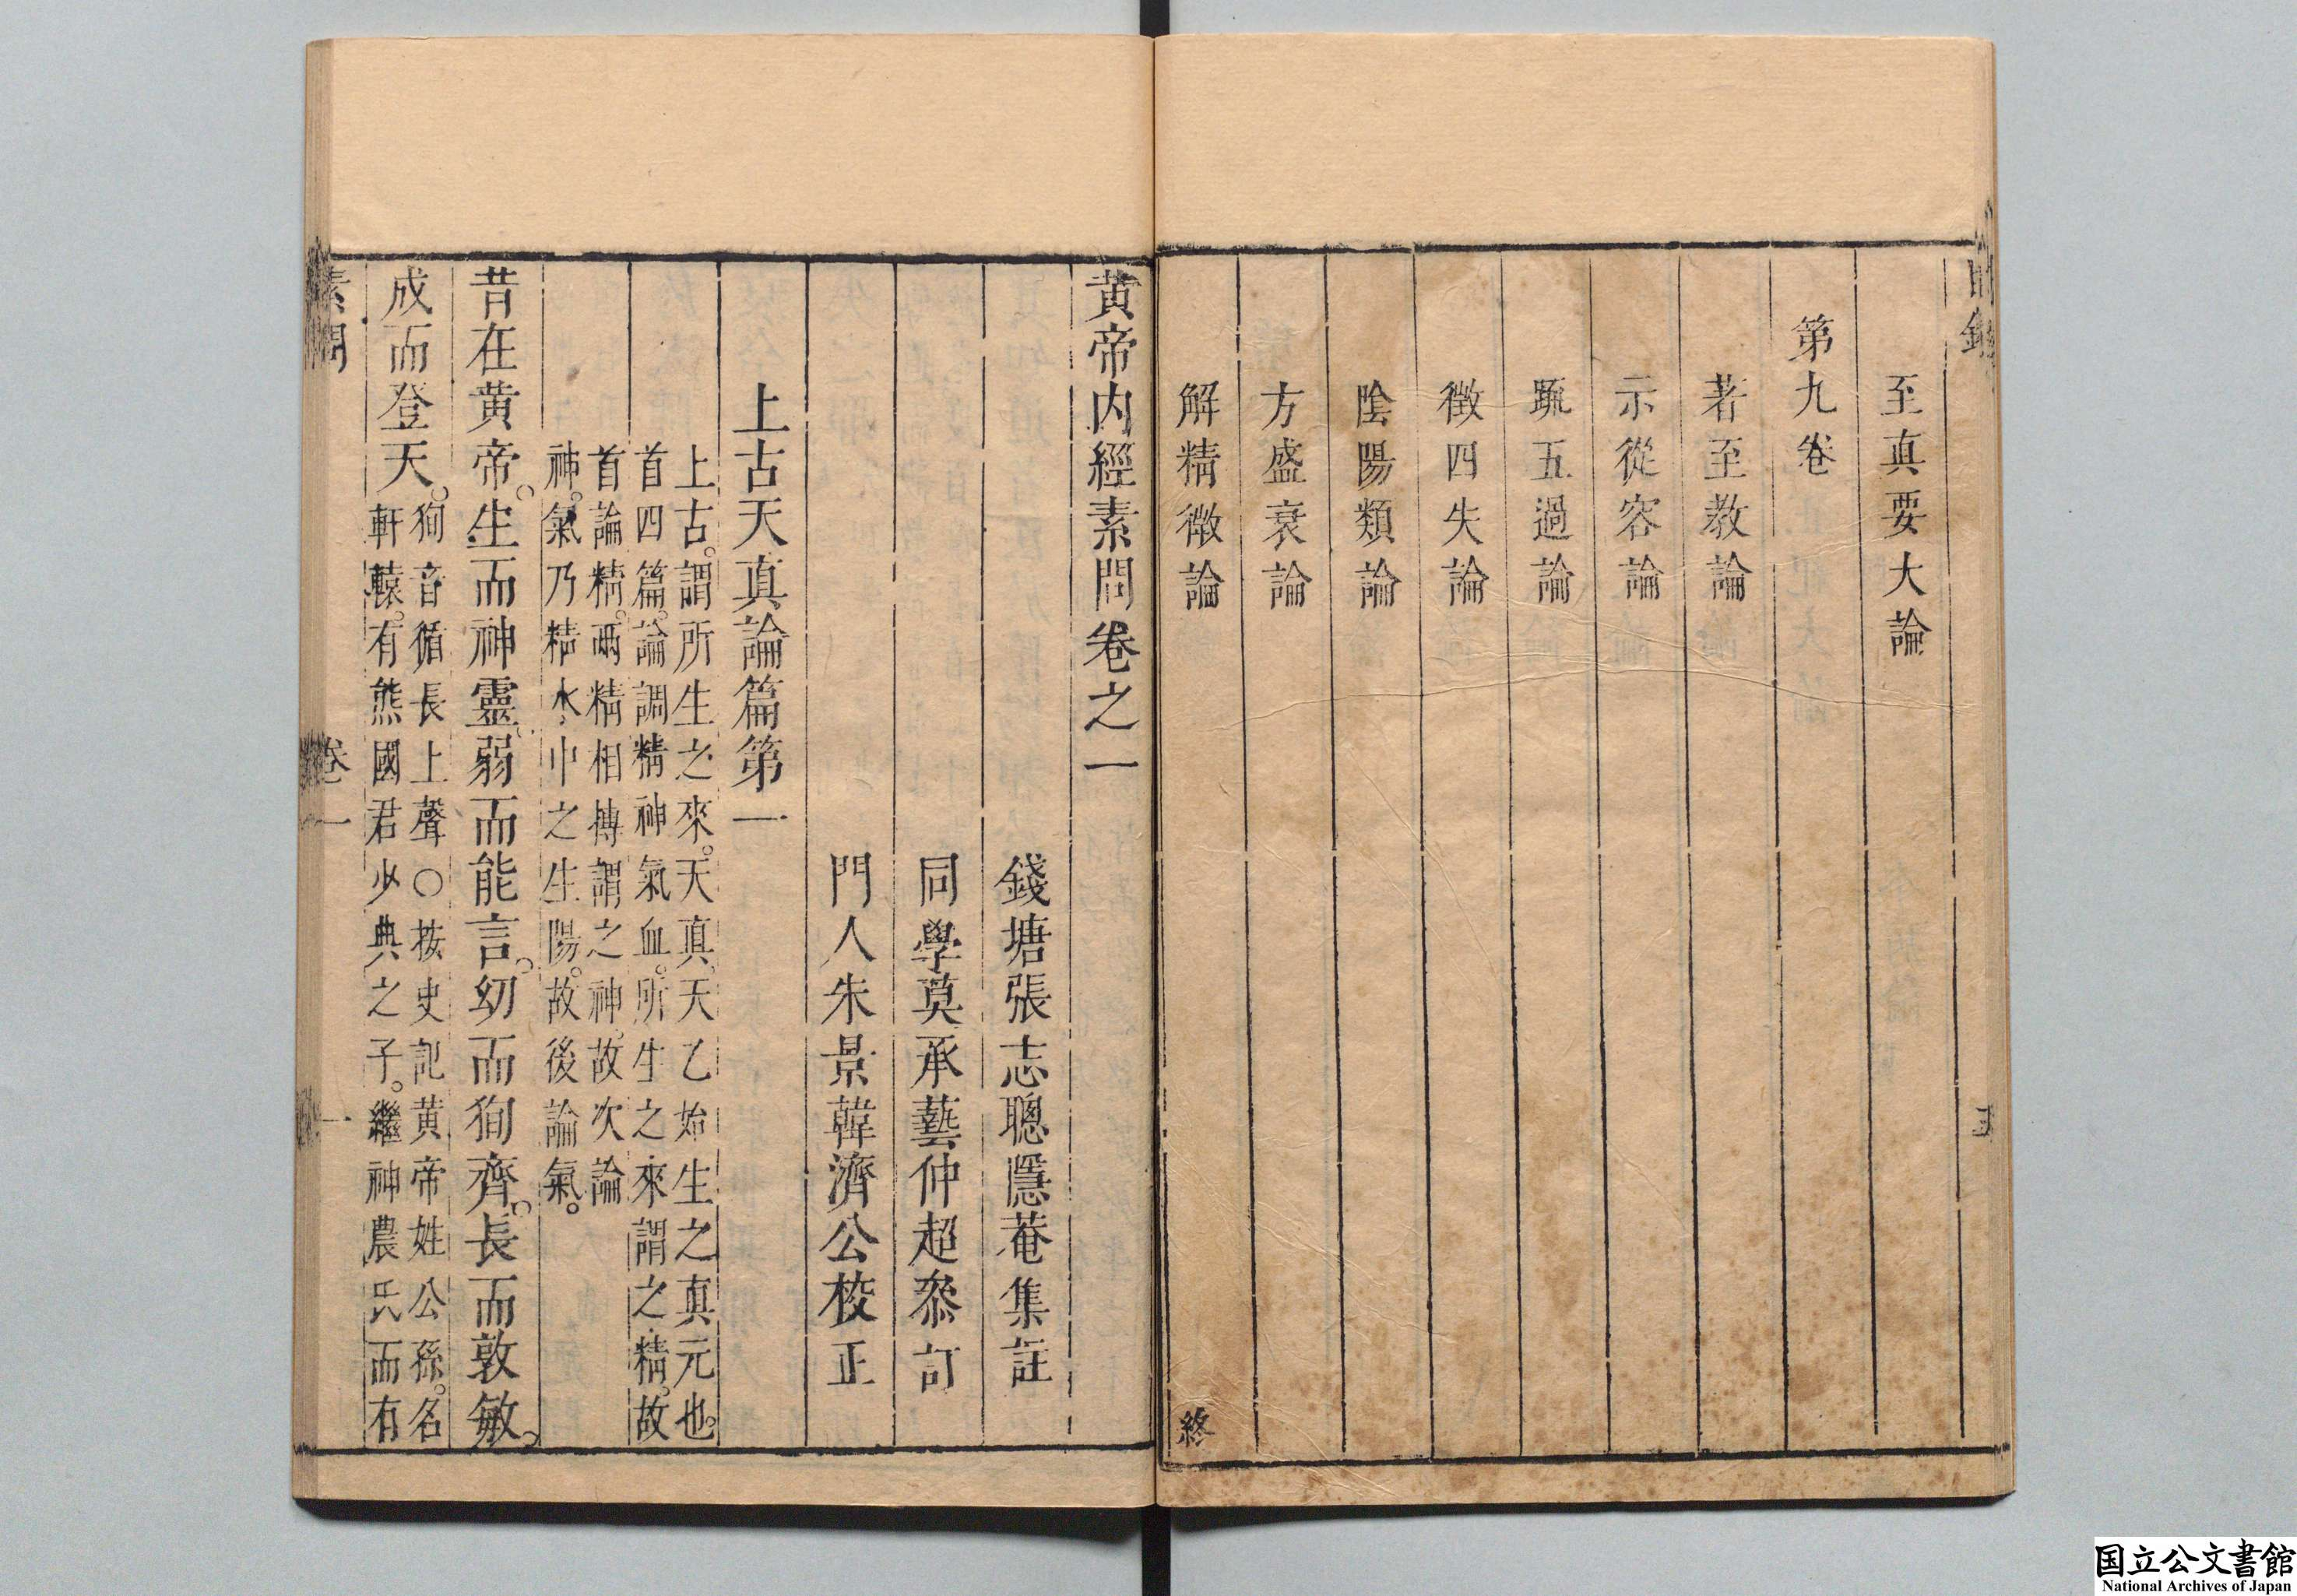 目錄
至真要大論
第九卷
著至教論
示從容論
䟽五過論
徵四失論
陰陽類論
方盛衰論
解精微論
終
黃帝内經素問卷之一
錢塘張志聰隱菴集註
同學莫承藝仲超叅訂
門人朱景韓濟公校正
上古天真論篇第一
上古。謂所生之來。天真。天乙始生之真元也。
首四篇。論調精神氣血。所生之來謂之精。故
首論精。兩精相搏謂之神。故次論
神。氣乃精水中之生陽。故後論氣。
昔在黃帝。生而神靈。弱而能言。幼而狥齊。長而敦敏。
成而登天。
狥音循長上聲○按史記黃帝姓公孫。名
軒轅。有熊國君少典之子。繼神農氏而有
素問 卷一 一
国立公文書館
National Archives of Japan